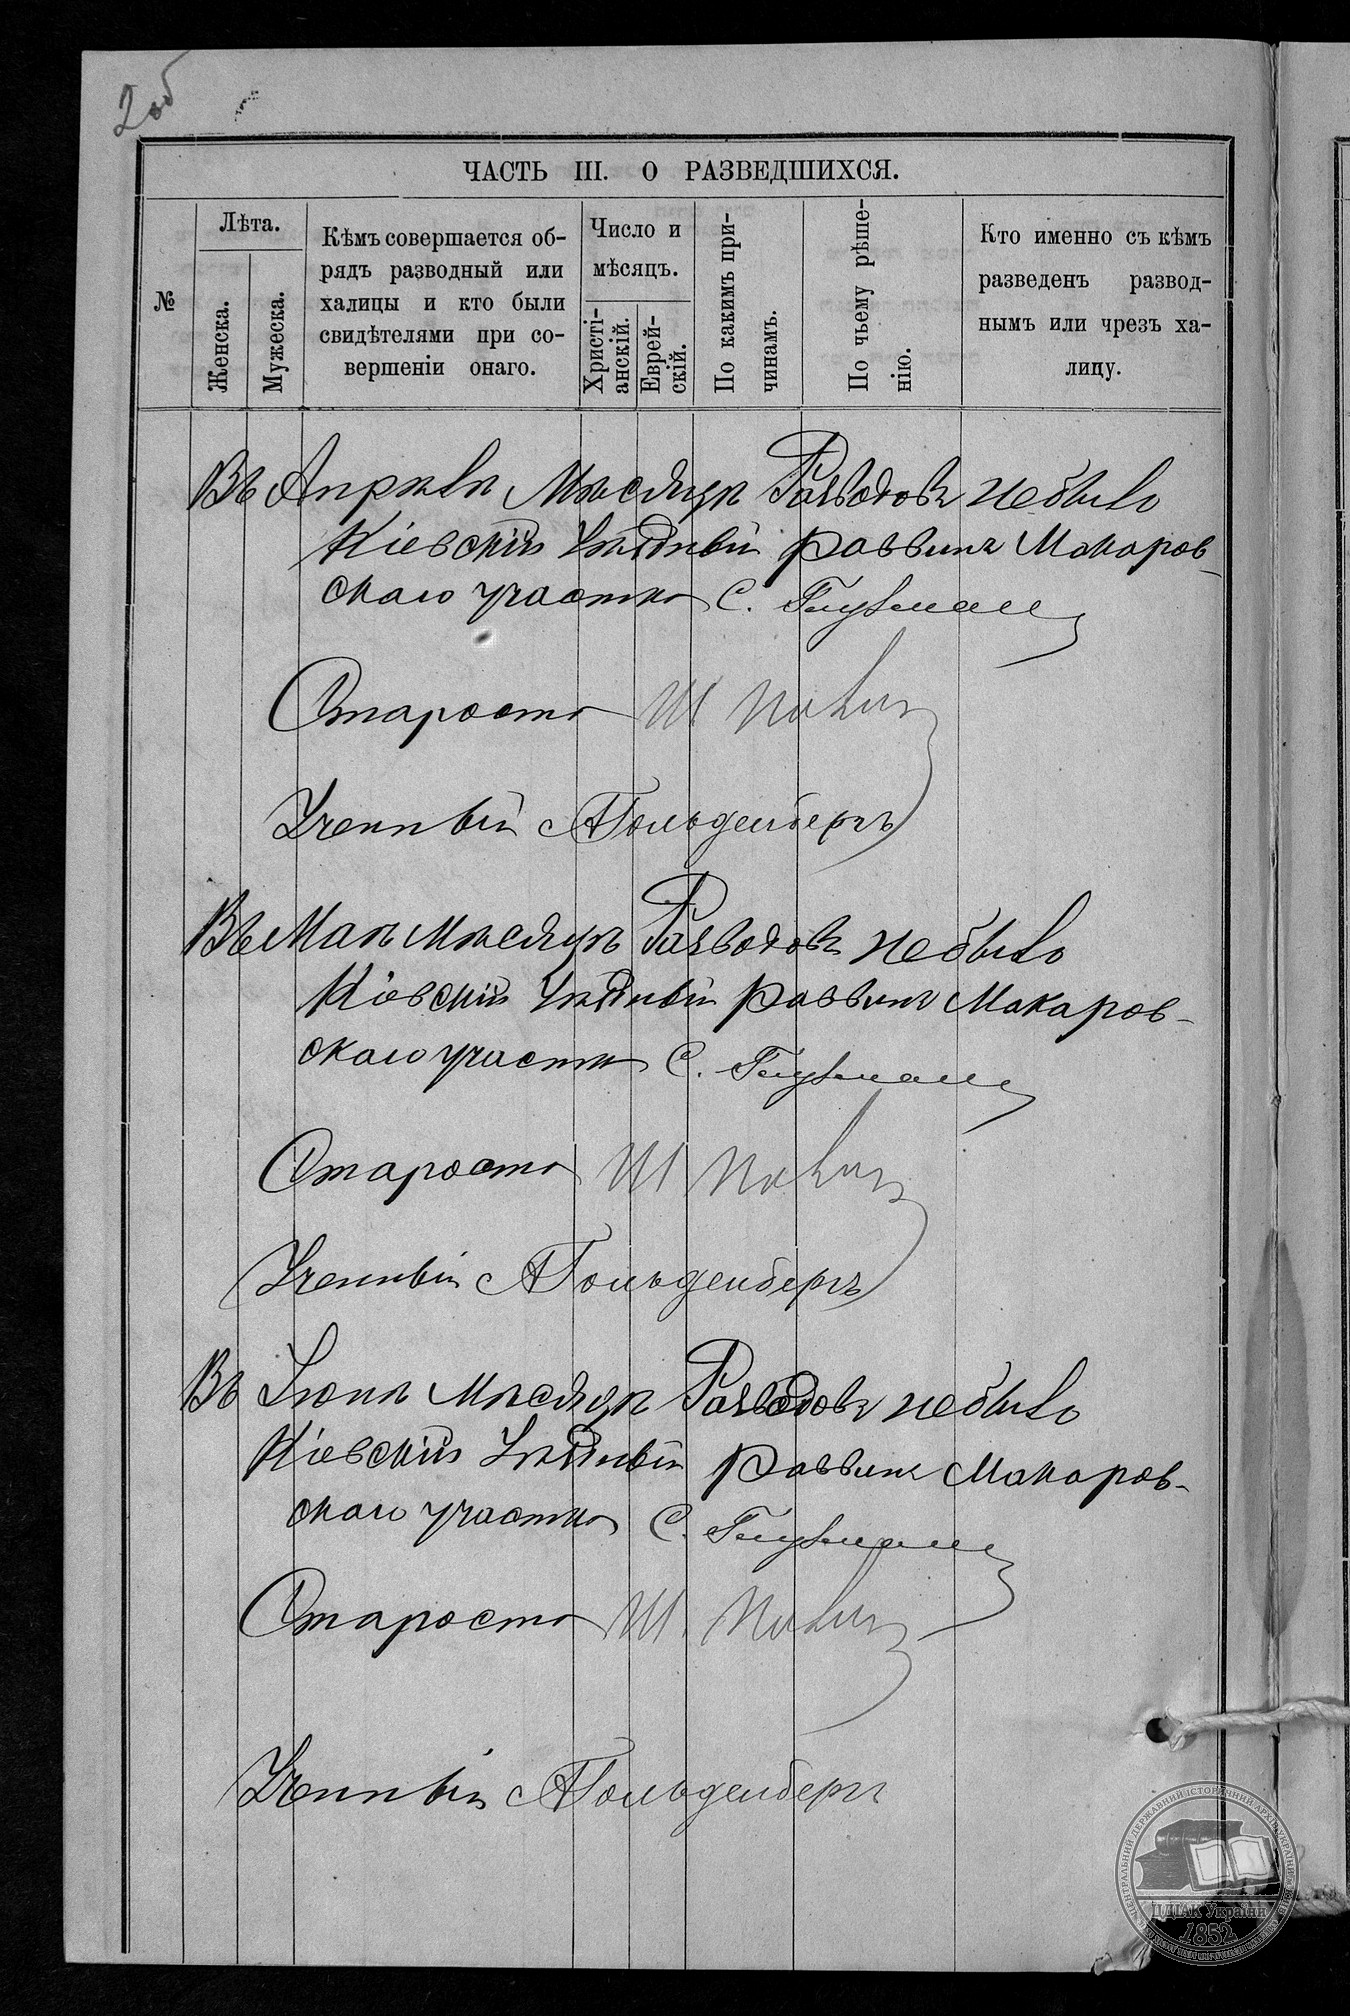 2об
ЧАСТЬ III. О РАЗВЕДШИХСЯ.
№
Лѣта.
Женска.
Мужеска.
Кѣмъ совершается об-
рядъ разводный или
халицы и кто были
свидѣтелями при со-
вершеніи онаго.
Число и
мѣсяцъ.
Христі-
анскій.
Еврей-
скій.
По какимъ при-
чинамъ.
По чьему рѣше-
нію.
Кто именно съ кѣмъ
разведенъ развод-
нымъ или чрезъ ха-
лицу.
Въ Апрѣлѣ Мѣсяцѣ Разводовъ небыло
Кіевскій Уѣздный раввинъ Макаров-
скаго участка С. Глузман
Староста Ш
Ученный А Гольденбергъ
Въ Маѣ Мѣсяцѣ Разводовъ небыло
Кіевскій Уѣздный раввинъ Макаров-
скаго участка С. Глузман
Староста Ш
Ученный А Гольденбергъ
Въ Іюнѣ Мѣсяцѣ Разводовъ небыло
Кіевскій Уѣздный раввинъ Макаров-
скаго участка С. Глузман
Староста Ш.
Ученный А Гольденбергъ
ЦЕНТРАЛЬНИЙ ДЕРЖАВНИЙ ІСТОРИЧНИЙ АРХІВ УКРАЇНИ, М. КИЇВ
ЦДІАК України
1852